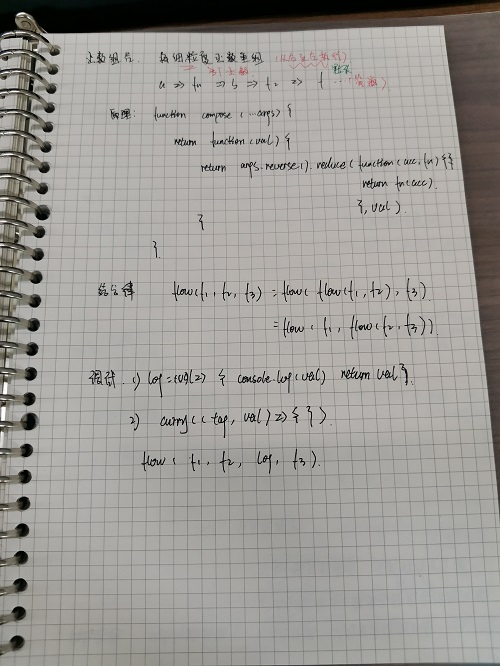 函数组合: 将细粒度函数重组 (从右至左执行)
a => fn => b => f2 => f
原理: function compose (...args) {
return function (val) {
return args.reverse().reduce (function (acc, fn) {
return fn(acc)
}, val)
}
}
结合律 flow(f1, f2, f3) = flow( flow(f1, f2), f3)
= flow ( f1, flow(f2, f3))
调试. 1) log = (val) => { console.log(val) return val }.
2) curry( (tag, val) => { } )
flow ( f1, f2, log, f3).